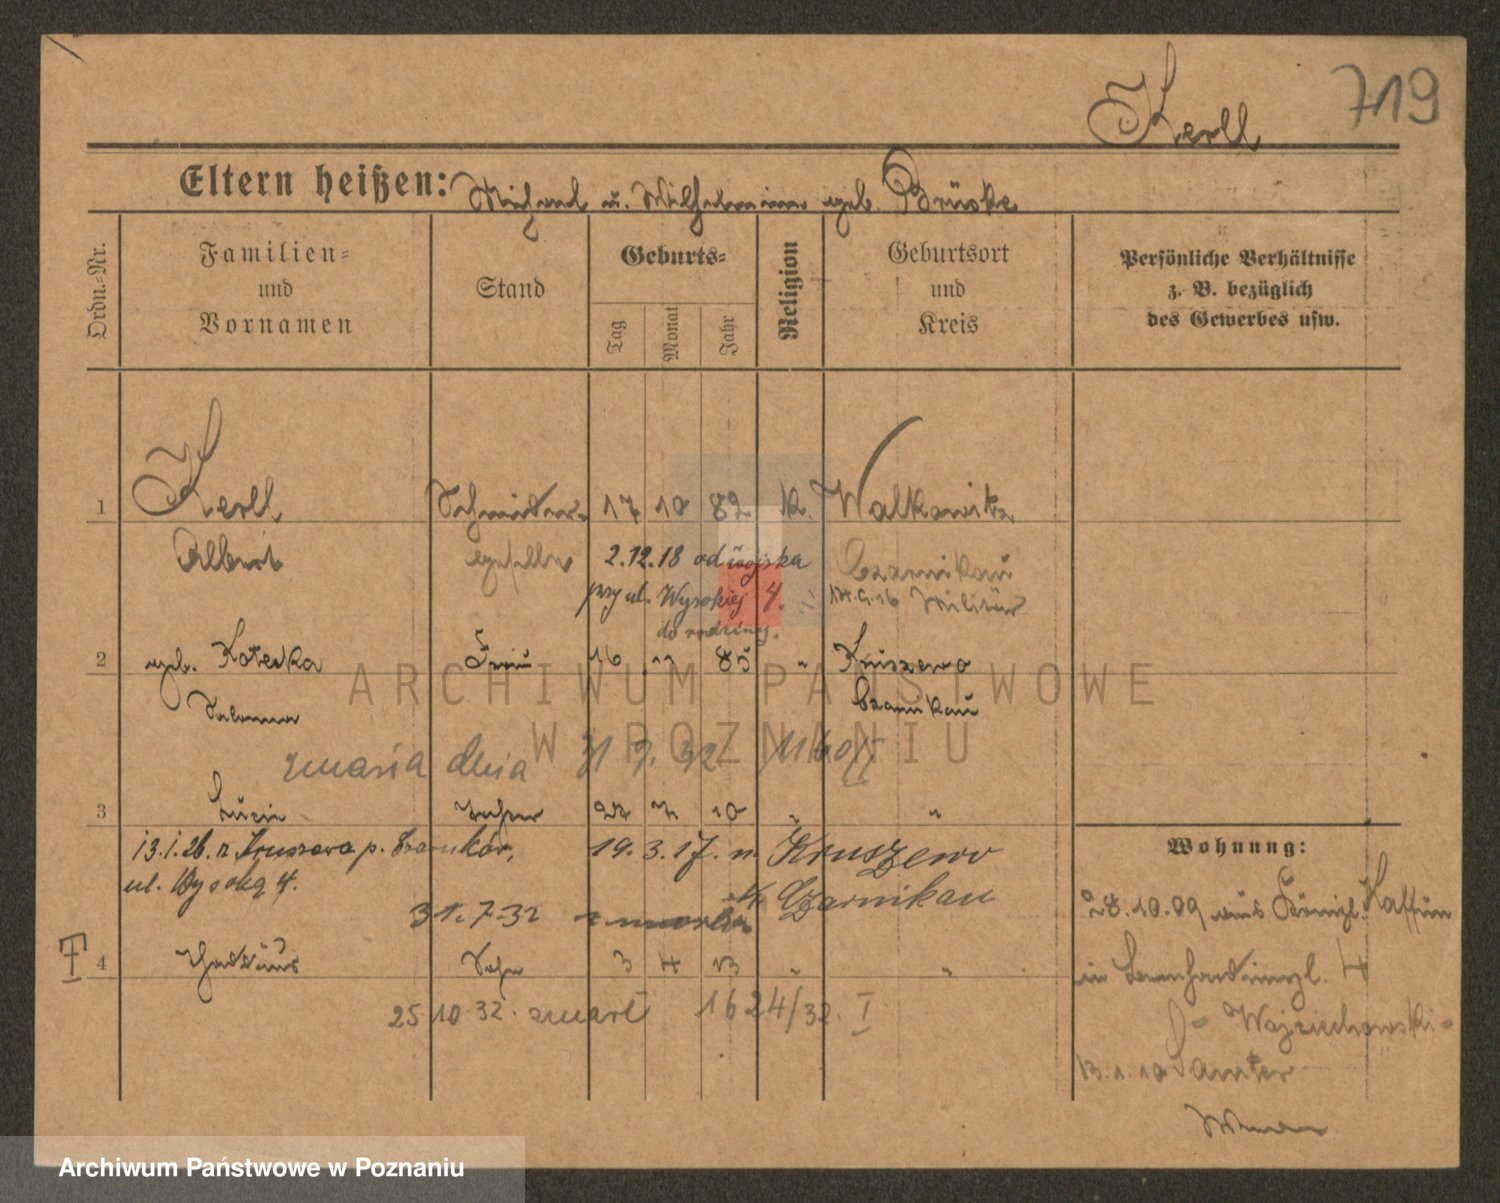 719
Kerll
Eltern heißen: Michael u. Wilhelmine geb. Brüske
Ordn.-Nr.
Familien-
und
Vornamen
Stand
Geburts-
Tag
Monat
Jahr
Religion
Geburtsort
und
Kreis
Persönliche Verhältnisse
z. B. bezüglich
des Gewerbes usw.
1 Kerll Schneider- 17 10 82 k. Walkowitz
Albert geselle 2.12.18 od wojska Czarnikau
przy ul. Wysokiej 4. Militär
do rodziny.
2 geb. Koteska Frau 16 11 85 " Kruszewo
Salomea Czarnikau
ARCHIWUM PAŃSTWOWE
W POZNANIU
zmarła dnia 31 7. 32
3 Luzie Tochter 24 7 10 " "
13.1.26. z Kruszewa p. Czarnków, 19.3.17. n. Kruszewo
ul. Wysoka 4. Czarnikau
31.7.32 zmarła
4 Thaddäus Sohn 3 4 13 " "
25 10 32. zmarł 1624/32. I
Wohnung:
28.10.09 aus
in 4
Wojciechowski
13.1.10 Samter
Archiwum Państwowe w Poznaniu